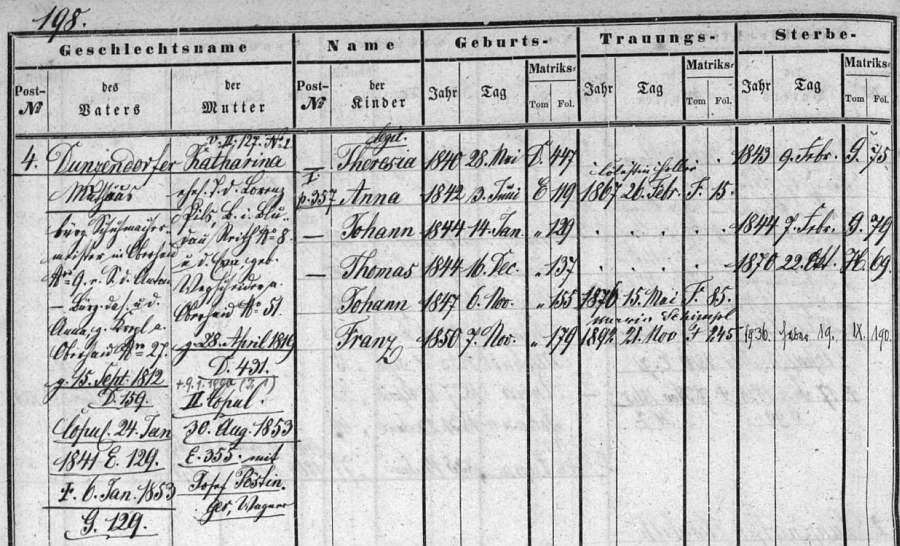 198.
Geschlechtsname Name Geburts- Trauungs- Sterbe-
Post-№ des Vaters der Mutter Post-№ der Kinder Jahr Tag Matriks- Tom Fol. Jahr Tag Matriks- Tom Fol. Jahr Tag Matriks- Tom Fol.
v. II. 127. № 2
4. Dunzendorfer Katharina Theresia 1840 28. Mai D. 447 1843 9. Febr. G. 75
Mathias ehel. T. d. Lorenz p. 357 Anna 1842 3. Juni E 119 1867 26. Febr. F. 15.
bürg. Schuhmacher- Pils, B. i. Blu- — Johann 1844 14. Jan. " 129 1844 7. Febr. G. 79
meister in Oberhaid dau Reith № 8. — Thomas 1844 16. Dec. " 137 1870 22. Okt. H. 69.
№ 9. e. S. d. Anton u. d. Eva geb.
— Bürg. das. u. d. Oberhaid № 51. Johann 1847 6. Nov. " 155 1876 15. Mai F. 85.
Maria Schimpl
Anna, g. a. g. 28. April 1819 Franz 1850 7. Nov. " 179 1892 21. Nov F 245 1936. 19. IX. 190.
Oberhaid № 27. D. 431.
g. 15. Sept. 1812
D. 159. II. Copul.
Copul. 24. Jan 30. Aug. 1853
1841 E. 129. E. 355. mit
†. 6. Jan. 1853 Josef Pöstin-
G. 129. ger, Wagner